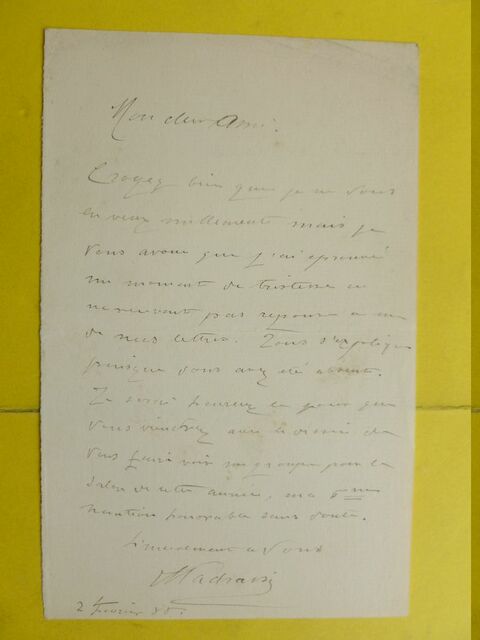 Mon cher Ami.
Croyez bien que je ne vous
en veux nullement mais je
vous avoue que j'ai éprouvé
un moment de tristesse en
ne recevant pas réponse à une
de mes lettres. Tout s'explique
puisque vous avez été absent.
Je serai heureux le jour que
vous viendrez
vous faire voir mon groupe pour le
Salon de cette année, ma 6me
mention honorable sans doute.
Sincèrement à vous
Madrassi
2 février 85.